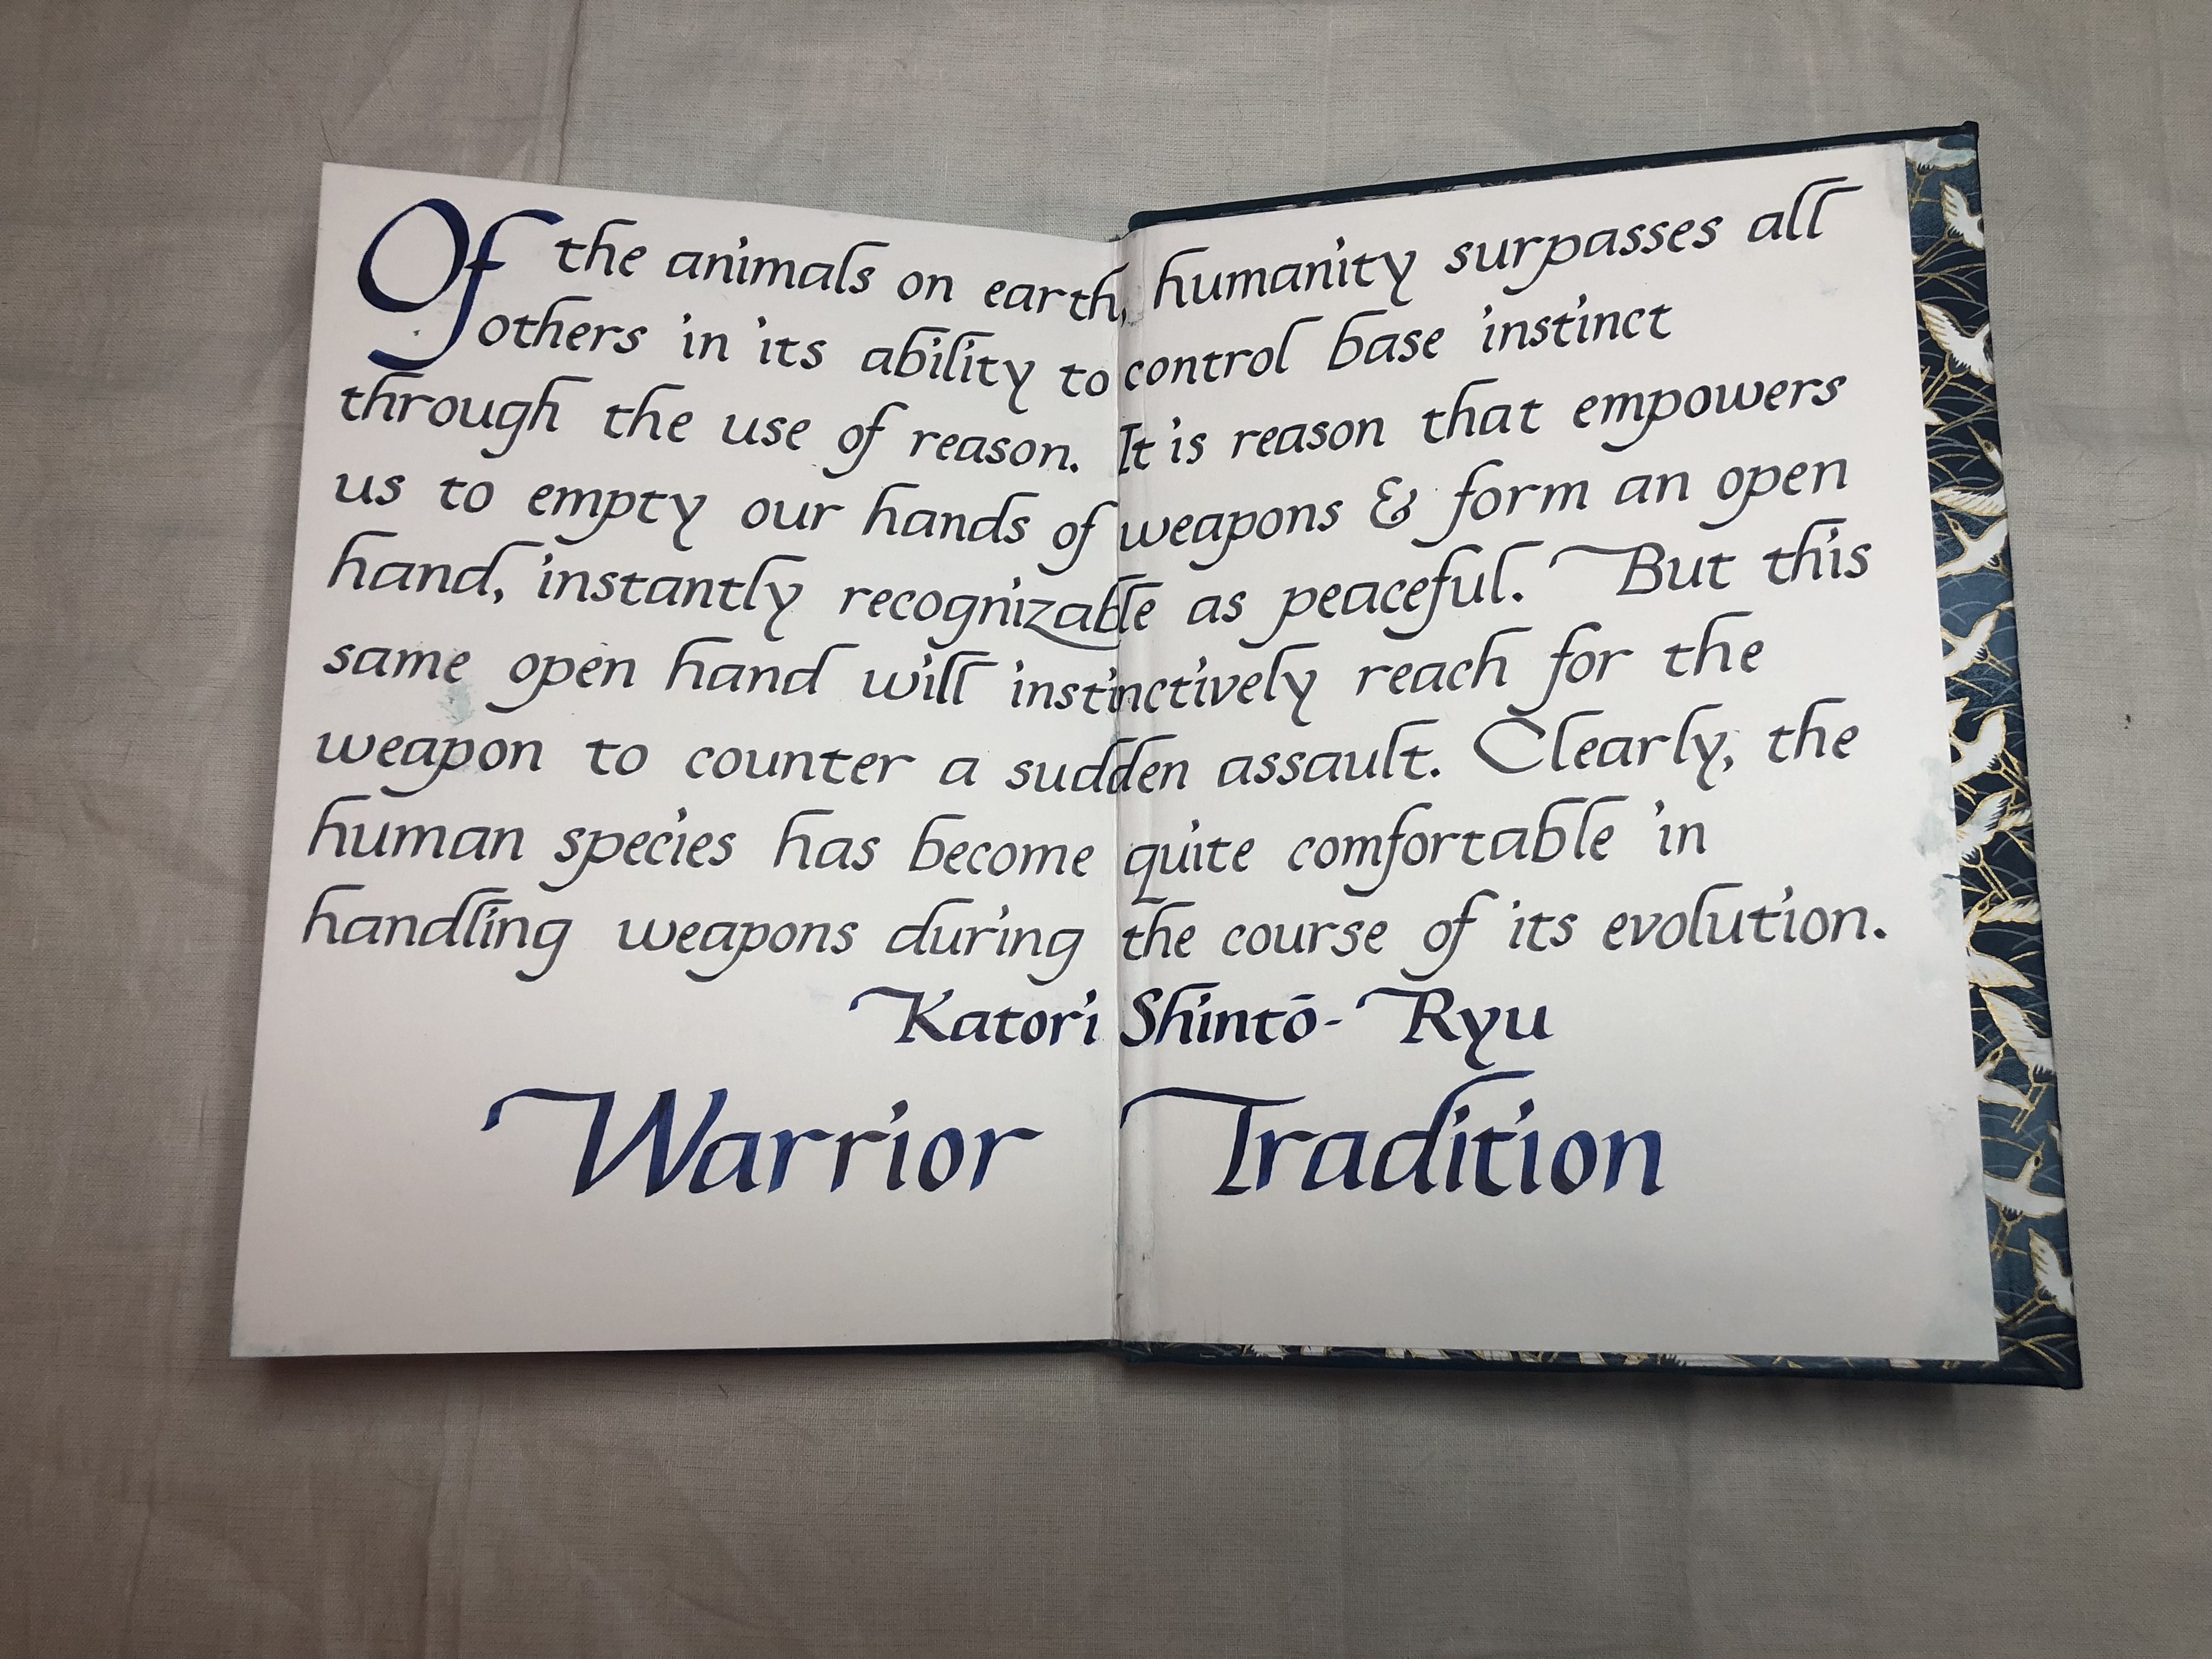 Of the animals on earth, humanity surpasses all
others in its ability to control base instinct
through the use of reason. It is reason that empowers
us to empty our hands of weapons & form an open
hand, instantly recognizable as peaceful. But this
same open hand will instinctively reach for the
weapon to counter a sudden assault. Clearly, the
human species has become quite comfortable in
handling weapons during the course of its evolution.
Katori Shintō-Ryu
Warrior Tradition